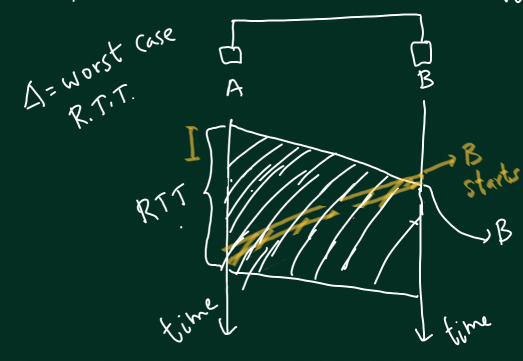 Δ = worst case
R.T.T.
A
B
I
RTT
B
starts
B
time
time